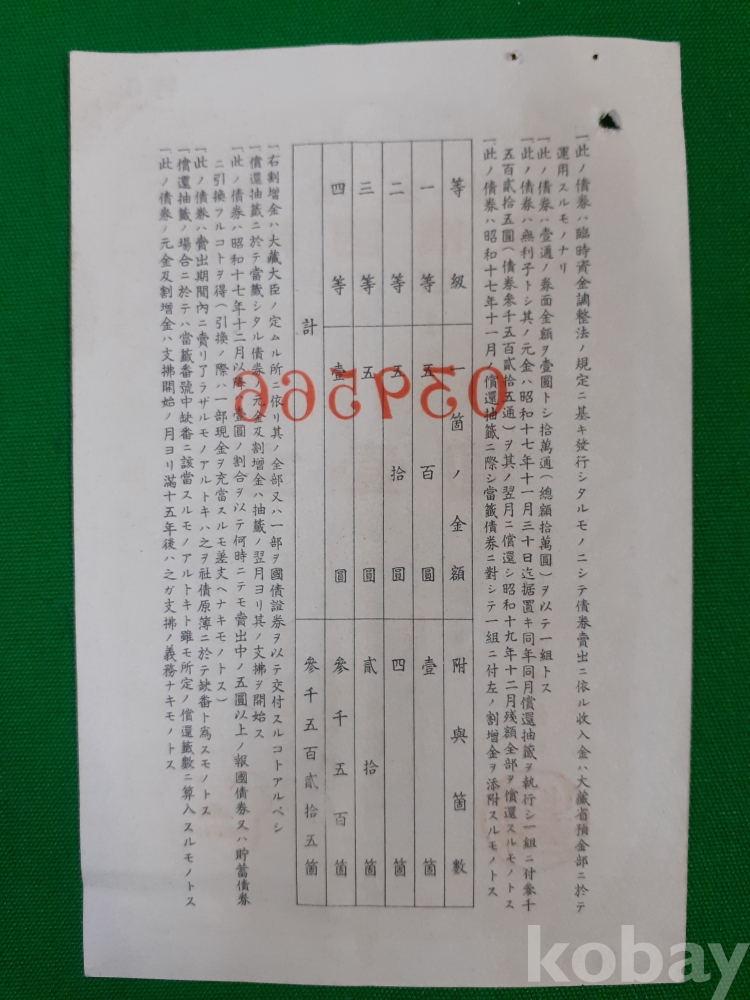 一此ノ債券ハ臨時資金調整法ノ規定ニ基キ發行シタルモノニシテ債券賣出ニ依ル收入金ハ大藏省預金部ニ於テ
運用スルモノナリ
一此ノ債券ハ壹通ノ券面金額ヲ壹圓トシ拾萬通(總額拾萬圓)ヲ以テ一組トス
一此ノ債券ハ無利子トシ其ノ元金ハ昭和十七年十一月三十日迄据置キ同年同月償還抽籤ヲ執行シ一組ニ付參千
五百貳拾五圓(債券參千五百貳拾五通)ヲ其ノ翌月ニ償還シ昭和十九年十二月殘額全部ヲ償還スルモノトス
一此ノ債券ハ昭和十七年十一月ノ償還抽籤ニ際シ當籤債券ニ對シテ一組ニ付左ノ割增金ヲ添附スルモノトス
等級 一箇ノ金額 附與箇數
一等 五百圓 壹箇
二等 五拾圓 四箇
三等 五圓 貳拾箇
四等 壹圓 參千五百箇
計 參千五百貳拾五箇
一右割增金ハ大藏大臣ノ定ムル所ニ依リ其ノ全部又ハ一部ヲ國債證券ヲ以テ交付スルコトアルベシ
一償還抽籤ニ於テ當籤シタル債券ノ元金及割增金ハ抽籤ノ翌月ヨリ其ノ支拂ヲ開始ス
一此ノ債券ハ昭和十七年十二月以降壹圓ノ割合ヲ以テ何時ニテモ賣出中ノ五圓以上ノ報國債券又ハ貯蓄債券
ニ引換フルコトヲ得(引換ノ際ハ一部現金ヲ充當スルモ差支ヘナキモノトス)
一此ノ債券ハ賣出期間內ニ賣リ了ラザルモノアルトキハ之ヲ社債原簿ニ於テ缺番ト爲スモノトス
一償還抽籤ノ場合ニ於テハ當籤番號中缺番ニ該當スルモノアルトキト雖モ所定ノ償還籤數ニ算入スルモノトス
一此ノ債券ノ元金及割增金ハ支拂開始ノ月ヨリ滿十五年後ハ之ガ支拂ノ義務ナキモノトス
039566
kobay